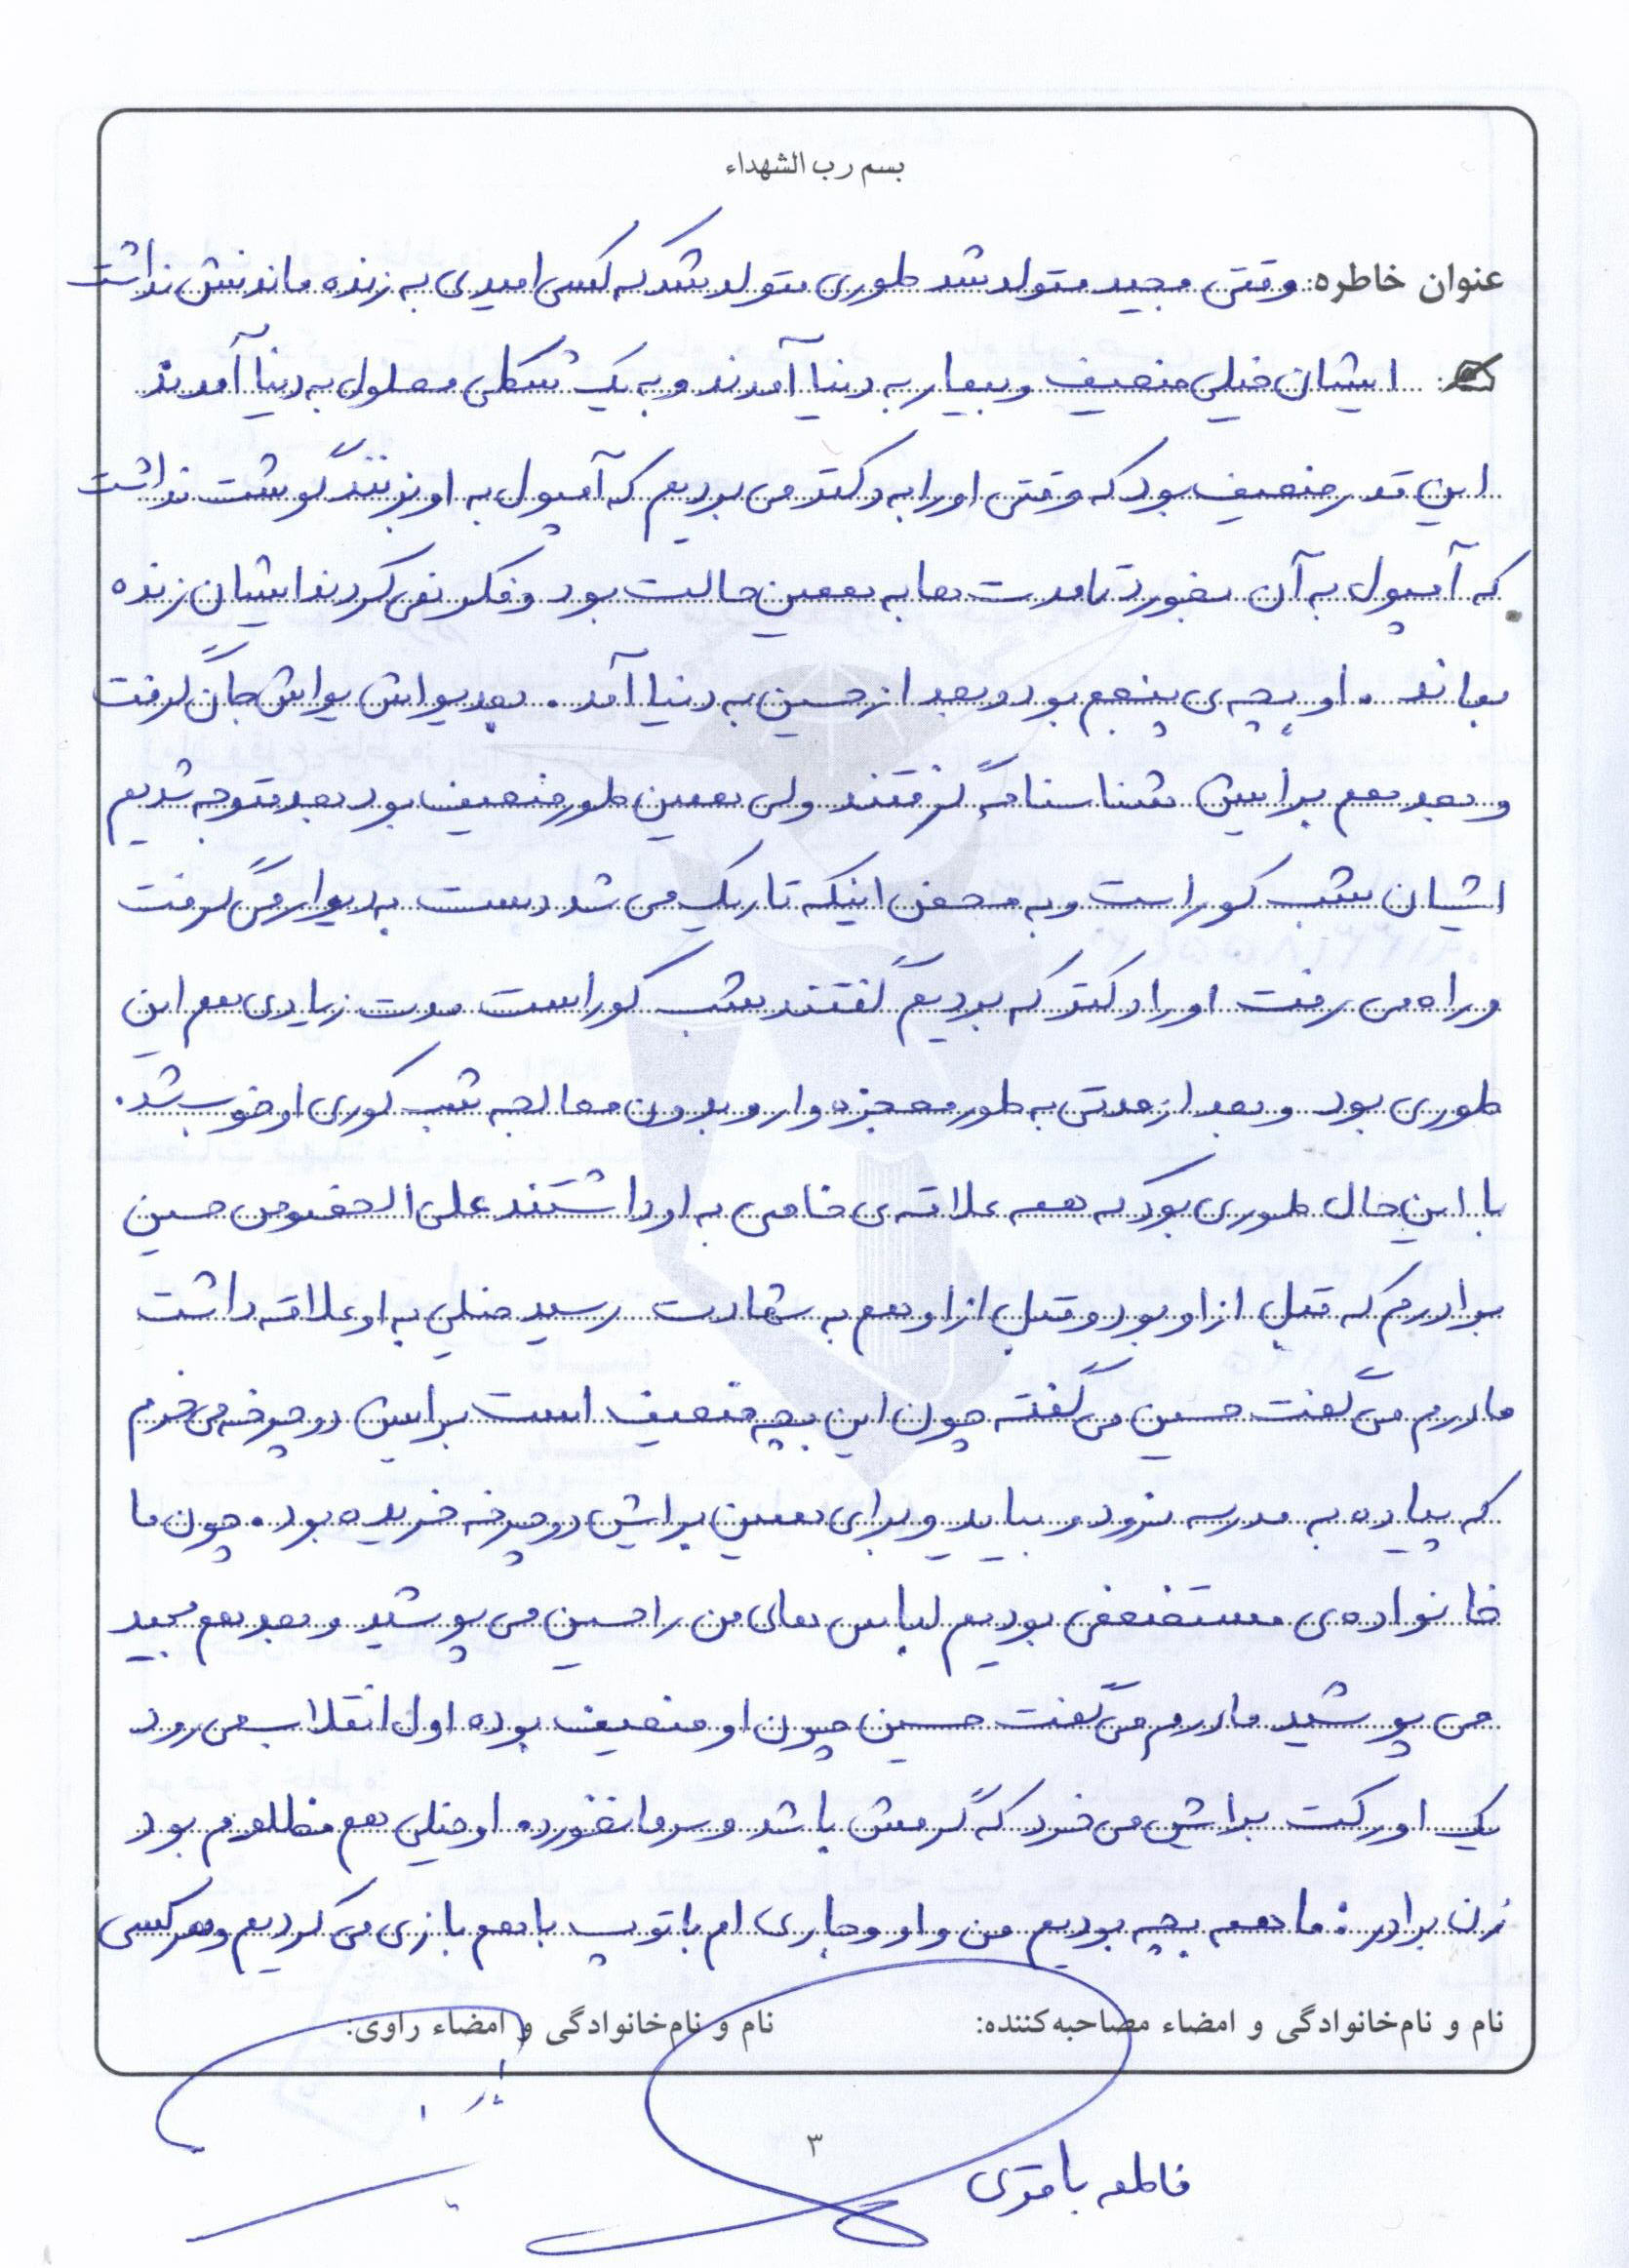 بسم رب الشهداء
عنوان خاطره: وقتی مجید متولد شد طوری متولد شد که کسی امیدی به زنده ماندنش نداشت
ایشان خیلی ضعیف و بیمار به دنیا آمدند و به یک شکلی معلول به دنیا آمدند
این قدر ضعیف بود که وقتی او را به دکتر می بردیم که آمپول به او بزنند گوشت نداشت
که آمپول به آن بخورد تا مدت ها به همین حالت بود و فکر نمی کردند ایشان زنده
بماند . او بچه ی پنجم بود و بعد از حسین به دنیا آمد . بعد یواش یواش جان گرفت
و بعد هم برایش شناسنامه گرفتند ولی همین طور ضعیف بود بعد متوجه شدیم
ایشان شب کور است و به محض اینکه تاریک می شد دست به دیوار می گرفت
و راه می رفت او را دکتر که بردیم گفتند شب کور است مدت زیادی هم این
طوری بود و بعد از مدتی به طور معجزه وار و بدون معالجه شب کوری او خوب شد.
با این حال طوری بود که همه علاقه ی خاصی به او داشتند علی الخصوص حسین
برادرم که قبل از او بود و قبل از او هم به شهادت رسید خیلی به او علاقه داشت
مادرم می گفت حسین می گفته چون این بچه ضعیف است برایش دوچرخه می خرم
که پیاده به مدرسه نرود و بیاید و برای همین برایش دوچرخه خریده بود . چون ما
خانواده ی مستضعفی بودیم لباس های من را حسین می پوشید و بعد هم مجید
می پوشید مادرم می گفت حسین چون او ضعیف بوده اول انقلاب می رود
یک اورکت برایش می خرد که گرمش باشد و سرما نخورده او خیلی هم مظلوم بود
زن برادر : ما همه بچه بودیم من و او و جاری ام با توپ با هم بازی می کردیم و هر کسی
نام و نام‌خانوادگی و امضاء مصاحبه‌کننده: نام و نام‌خانوادگی و امضاء راوی:
۳
فاطمه باقری